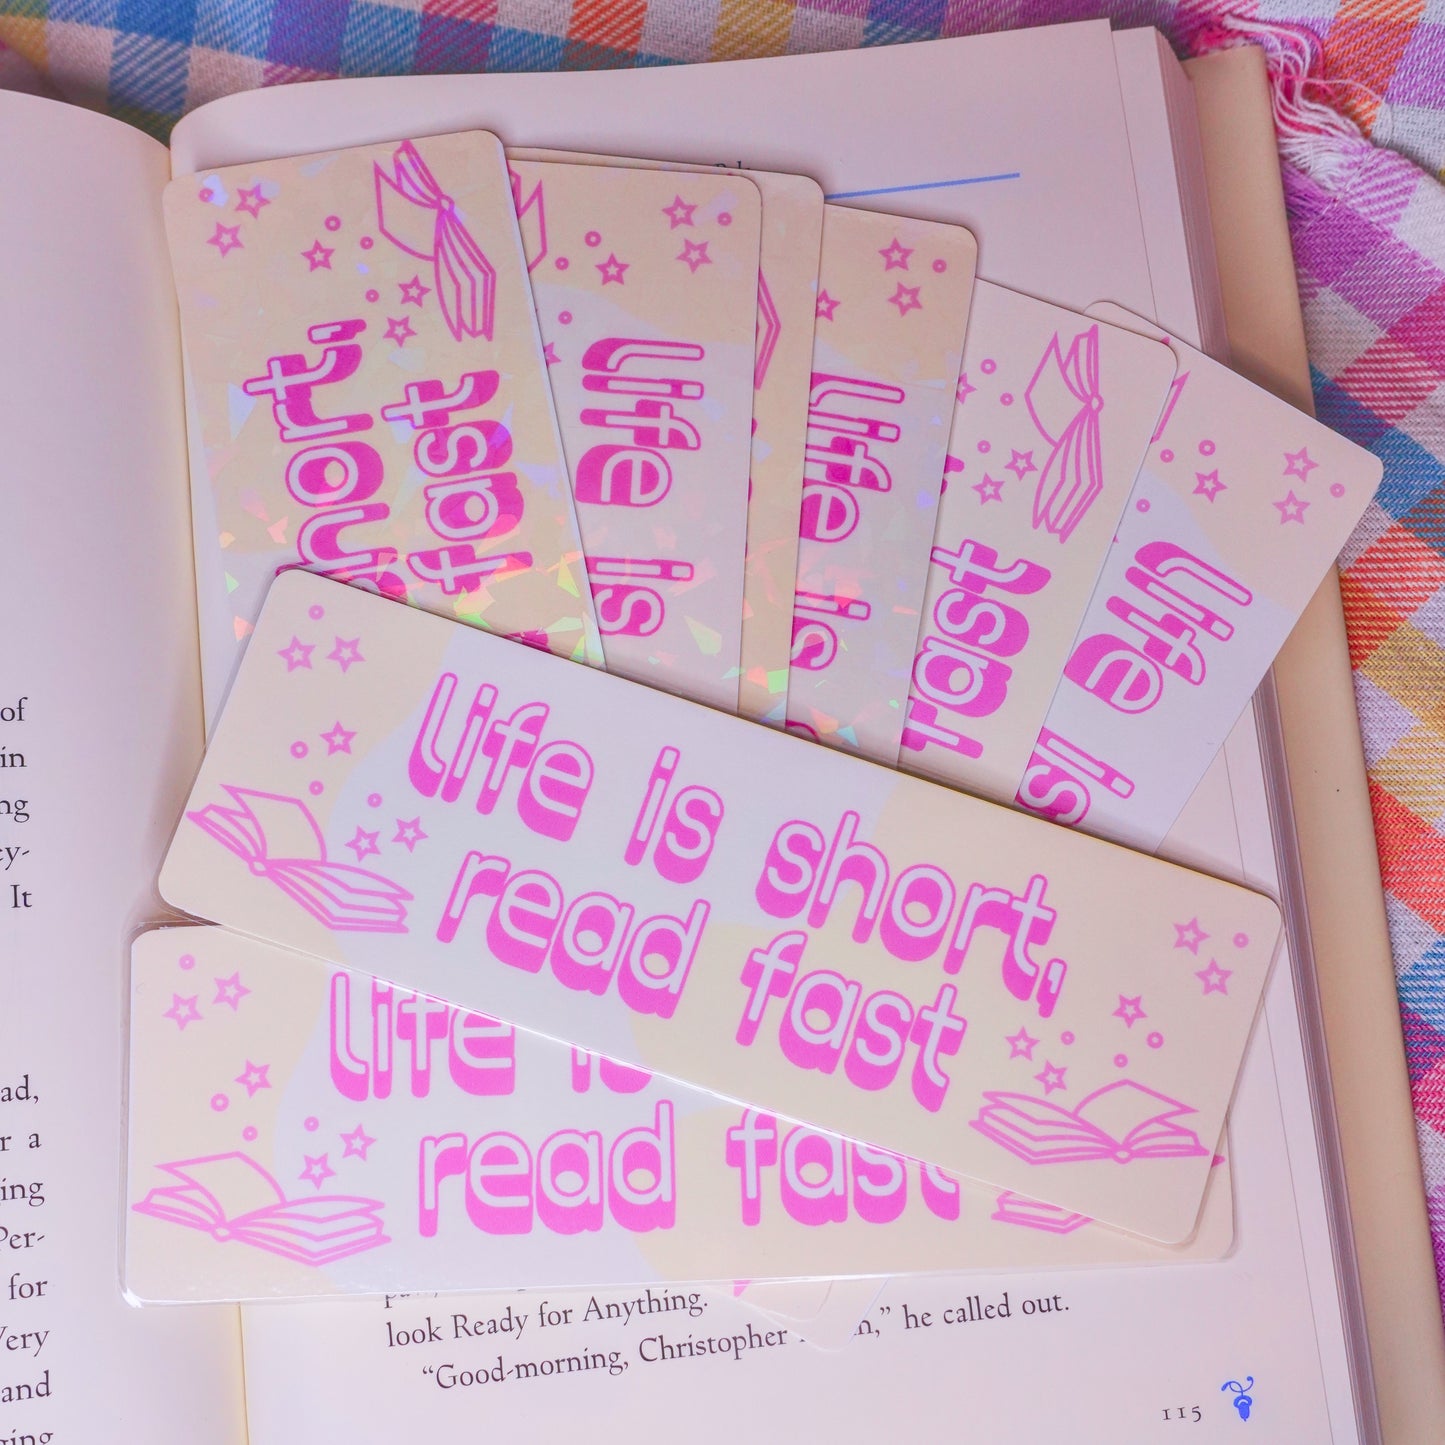 short,
fast
life is
life is
fast
life is
life is short,
read fast
life is
read fast
of
in
It
ad,
r a
ing
Per-
for
Very
and
ging
look Ready for Anything.
“Good-morning, Christopher
,” he called out.
115